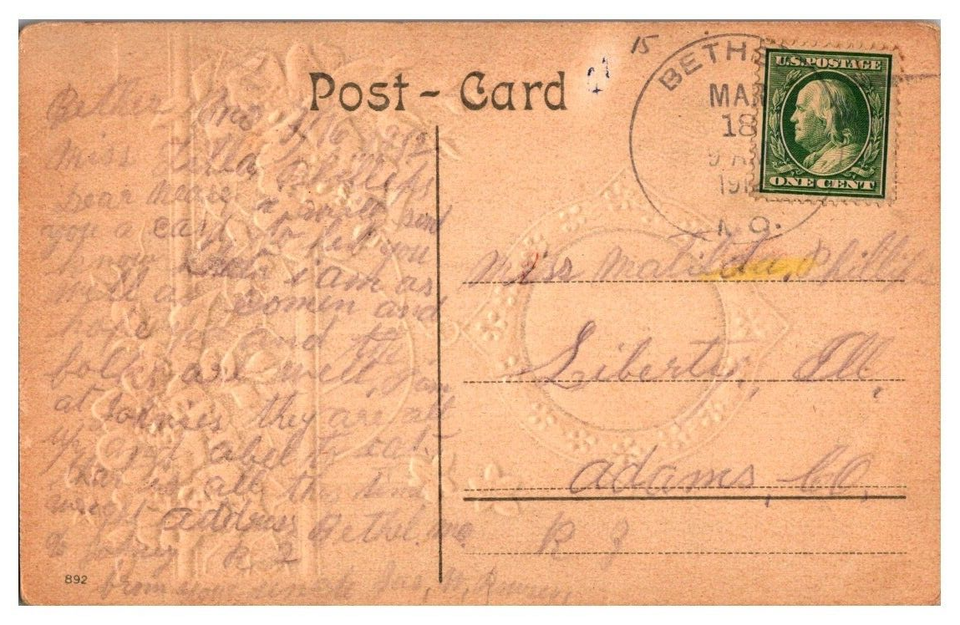 Post-Card
15
BETHE
MAR
18
9 A
191
MO.
U.S. POSTAGE
ONE CENT
Bethel Mo
Miss Phillips
Dear neace
you a card to let you
know that I am as
well as comen and
hope you and the
folks are well, I am
at they are all
up and abel to eat
this is all this time
address Bethel Mo
R 2
from your uncle Jas, W,
Miss Matilda, Phillips
Liberty, Ill,
Adams, Co,
R 2
892